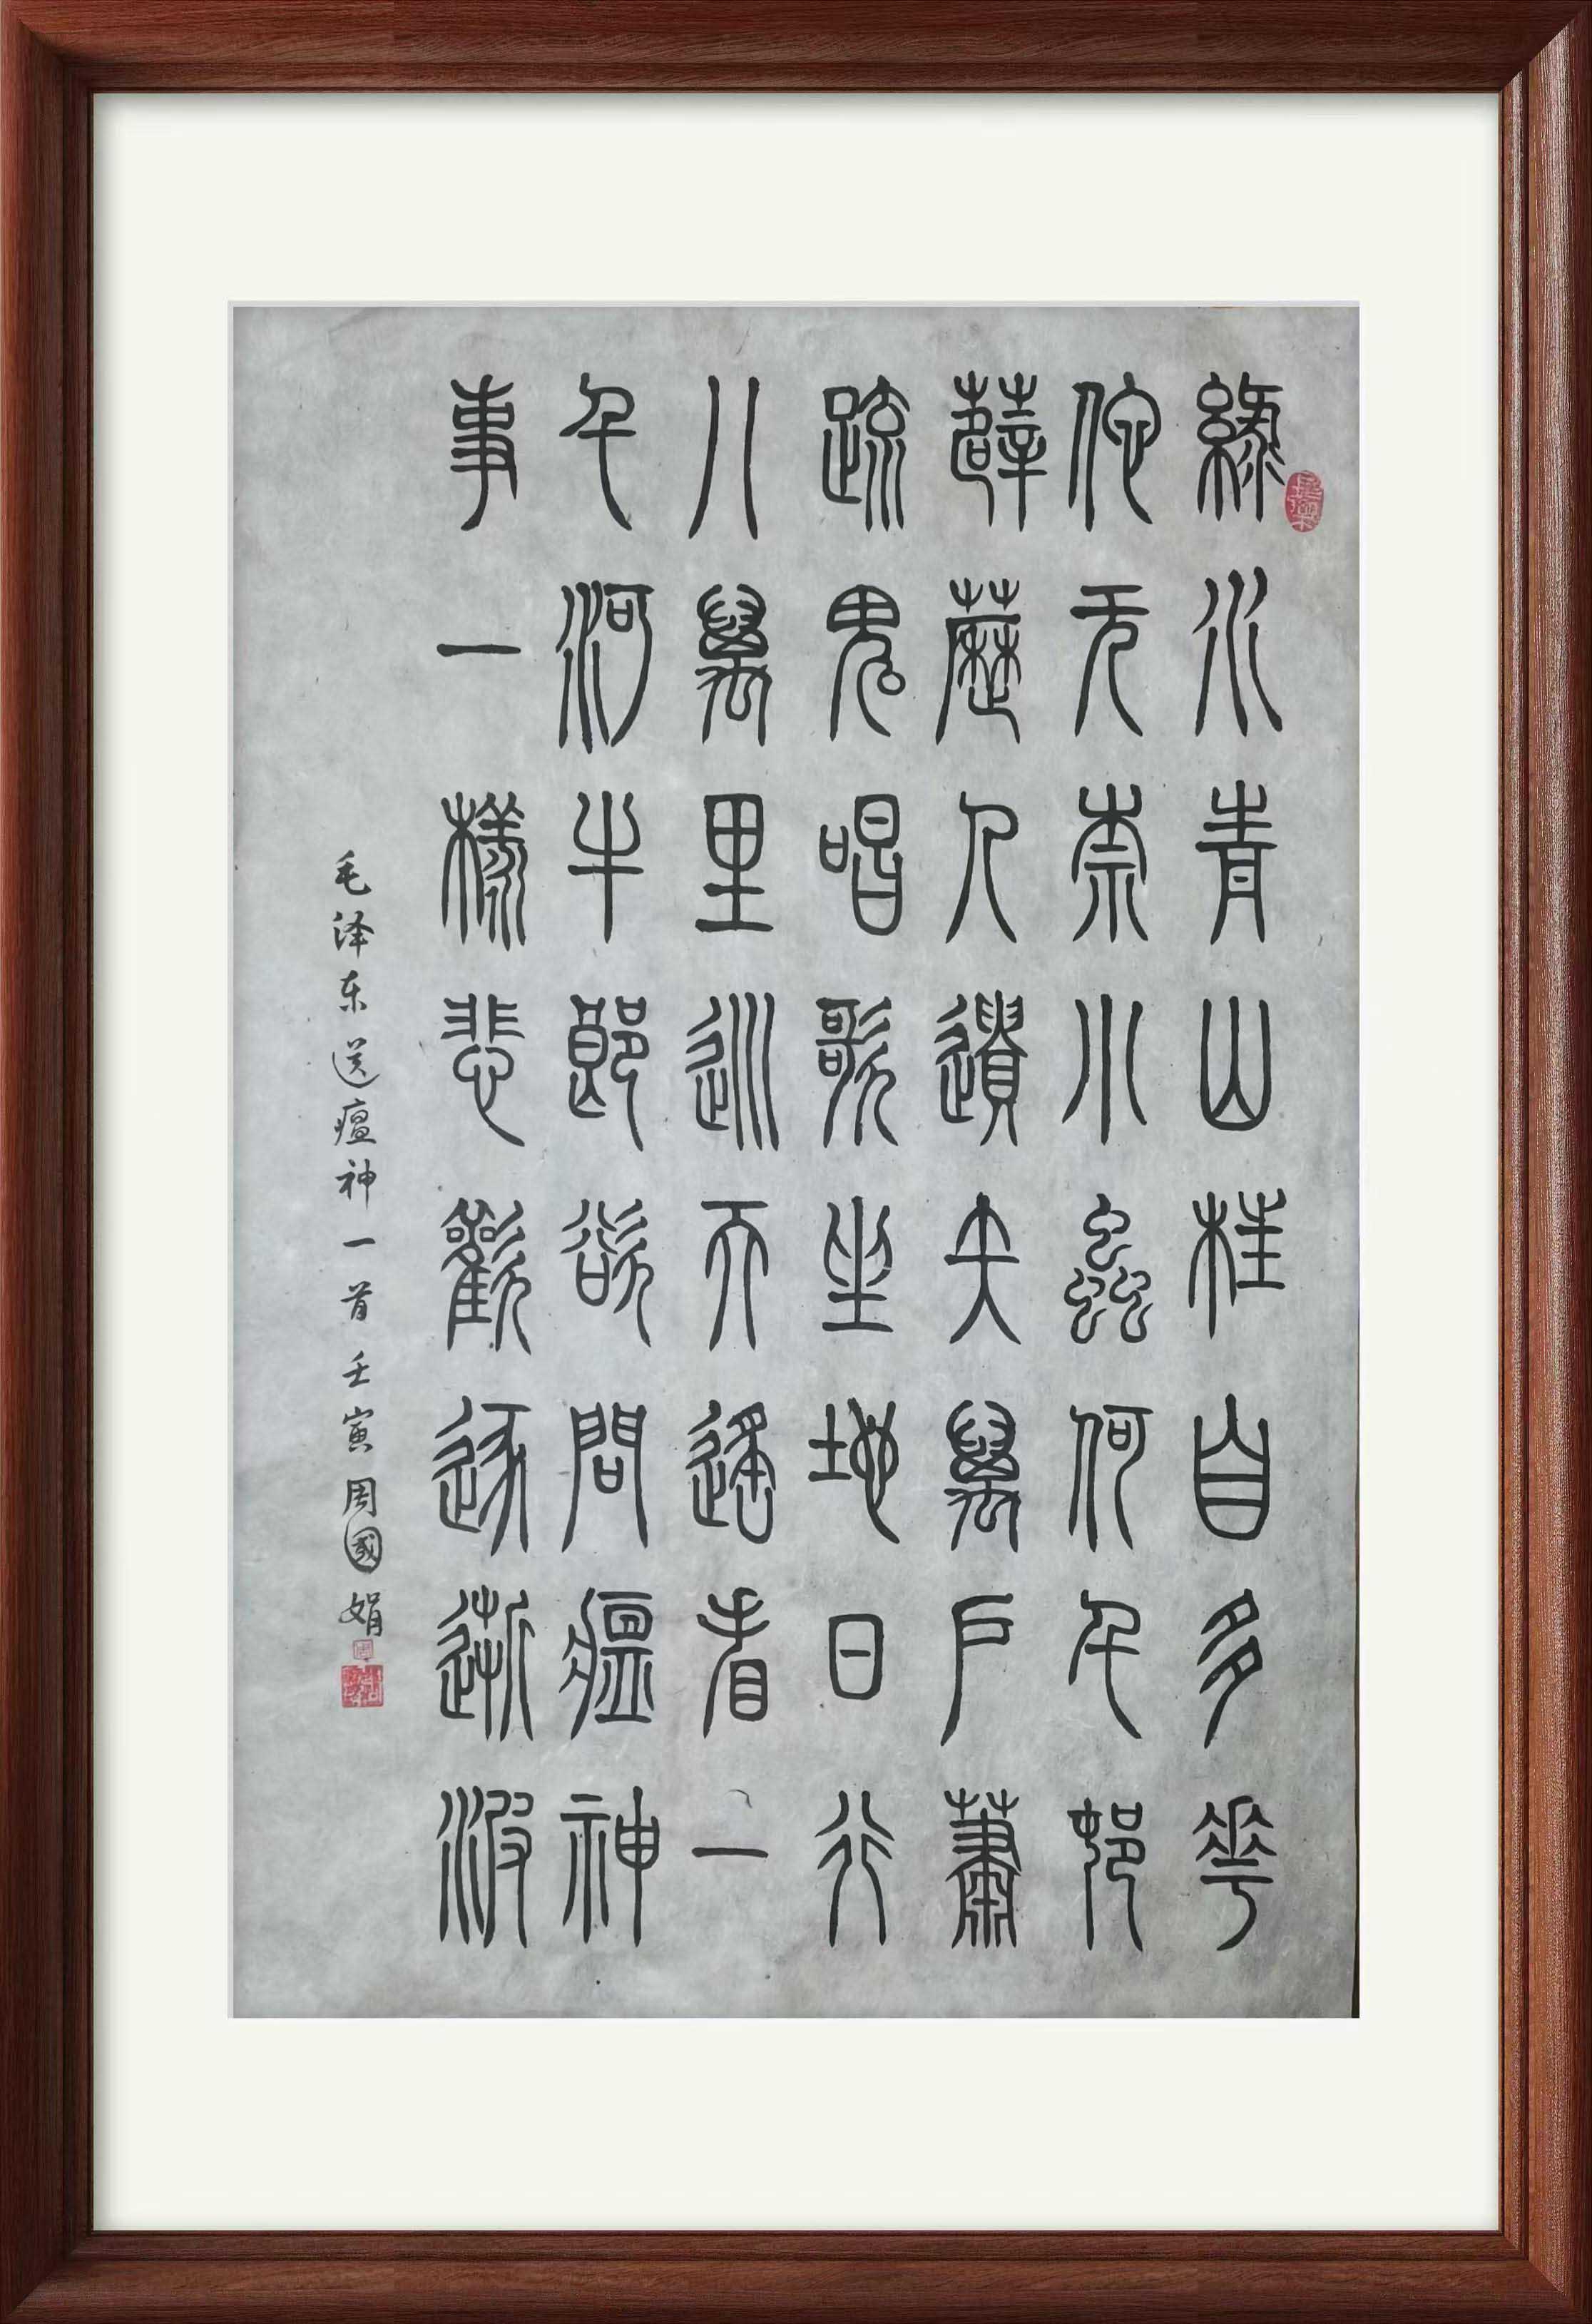 綠水青山枉自多華
佗无奈小蟲何千邨
薜荔人遺矢萬戶蕭
疏鬼唱歌坐地日行
八萬里巡天遙看一
千河牛郎欲問瘟神
事一樣悲歡逐逝波
毛泽东送瘟神一首壬寅周國娟